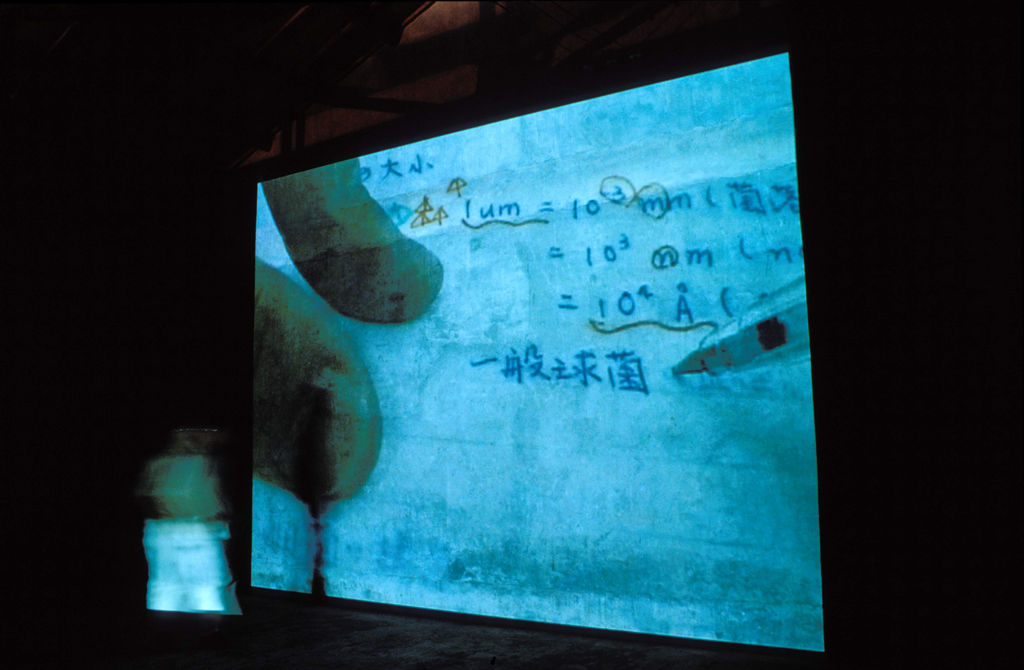 大小
1um = 10⁻³ mm (菌落
= 10³ nm (
= 10⁴ Å (
一般球菌